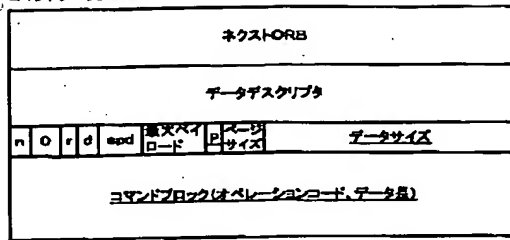 ネクストORB
データデスクリプタ
n 0 r d spd 最大ペイロード P ページサイズ データサイズ
コマンドブロック(オペレーションコード、データ長)